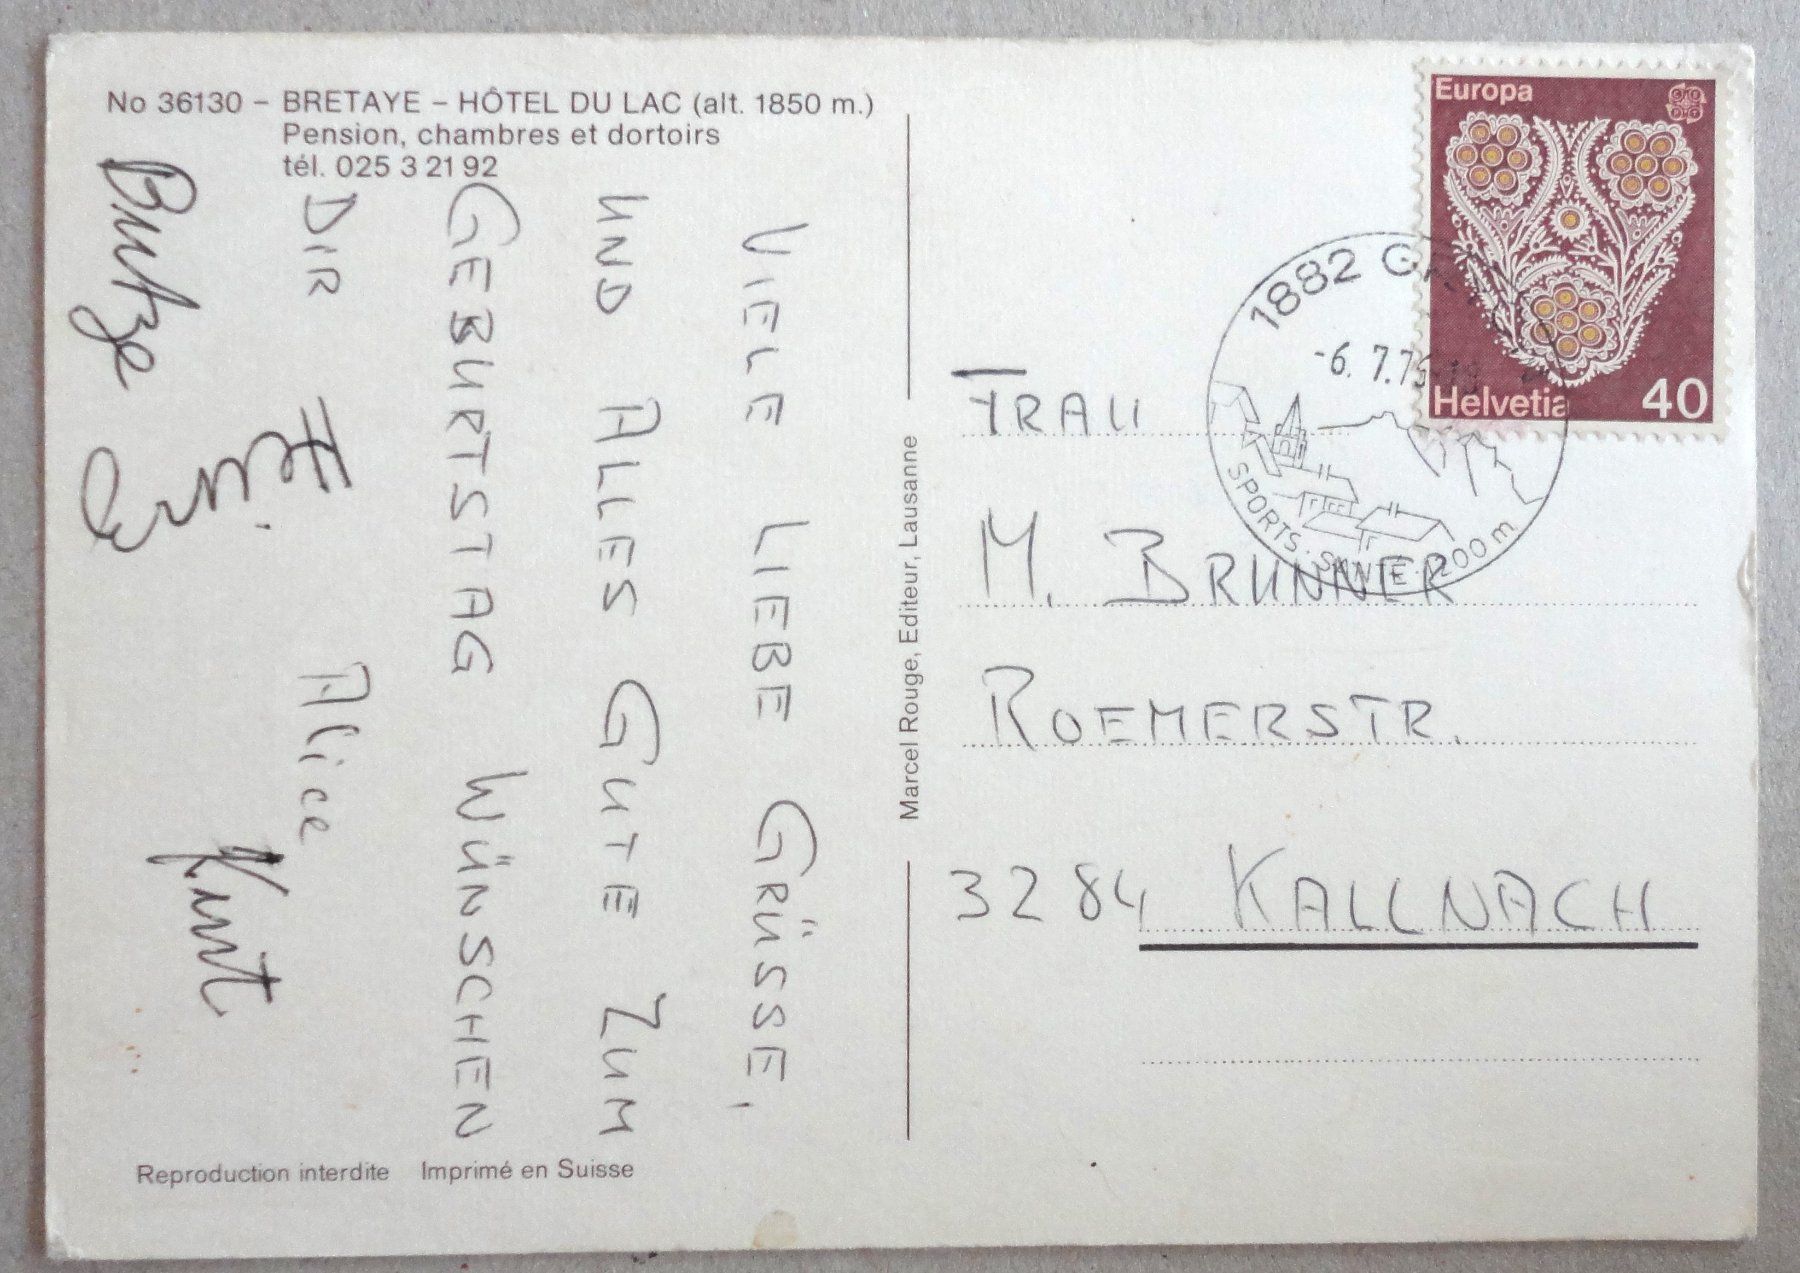 No 36130 – BRETAYE – HÔTEL DU LAC (alt. 1850 m.)
Pension, chambres et dortoirs
tél. 025 3 21 92
VIELE LIEBE GRÜSSE,
UND ALLES GUTE ZUM
GEBURTSTAG WÜNSCHEN
DIR
Alice
Heinz
Kurt
Reproduction interdite Imprimé en Suisse
Marcel Rouge, Editeur, Lausanne
Europa
Helvetia 40
1882
-6. 7.76
SPORTS · SANTÉ · 1200 m
FRAU
M. BRUNNER
ROEMERSTR.
3284 KALLNACH